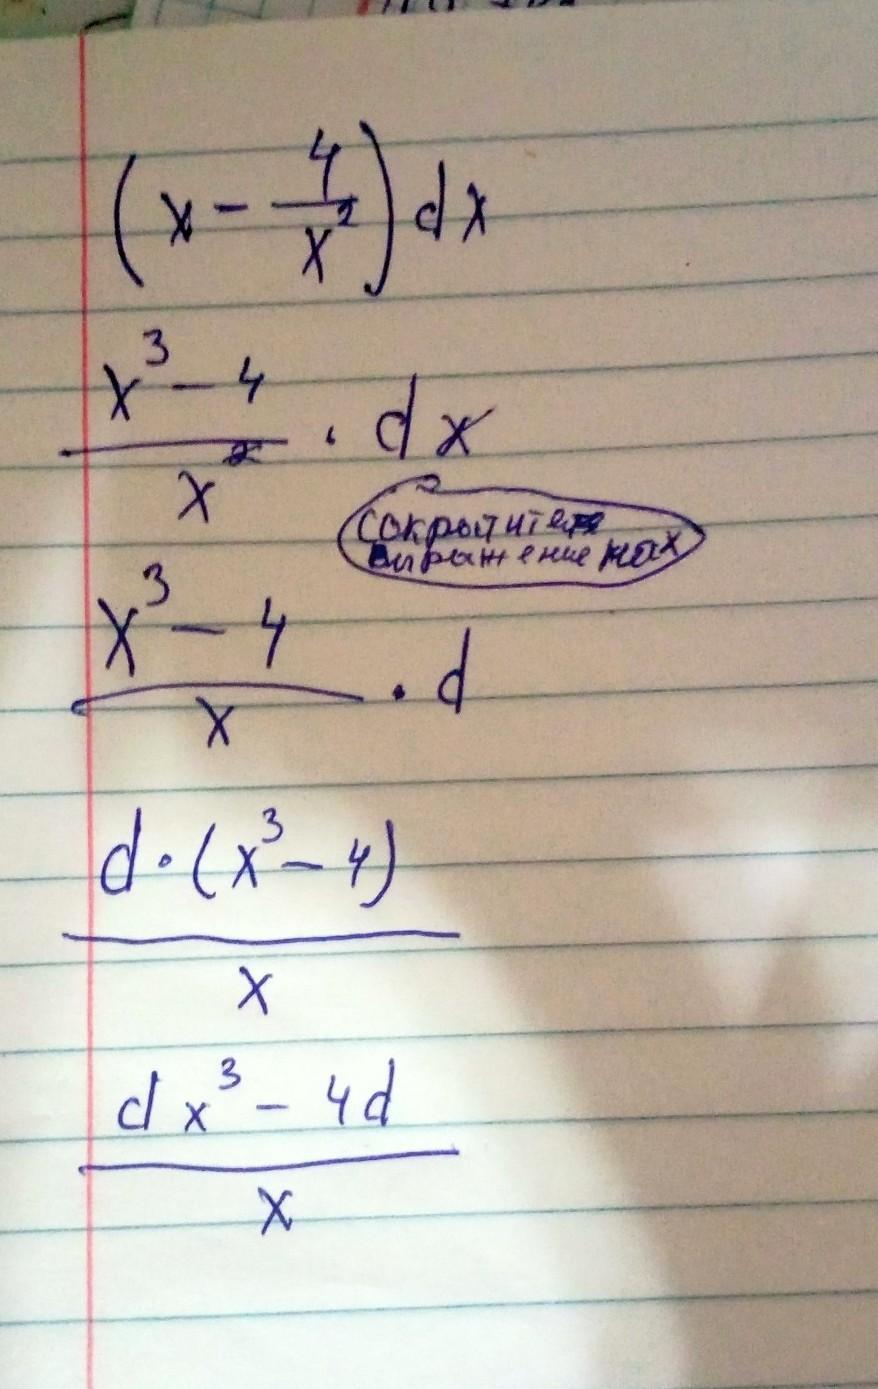 (x - 4/x²) dx
x³ - 4 / x² · dx
сократите
выражение на x
x³ - 4 / x · d
d · (x³ - 4) / x
dx³ - 4d / x